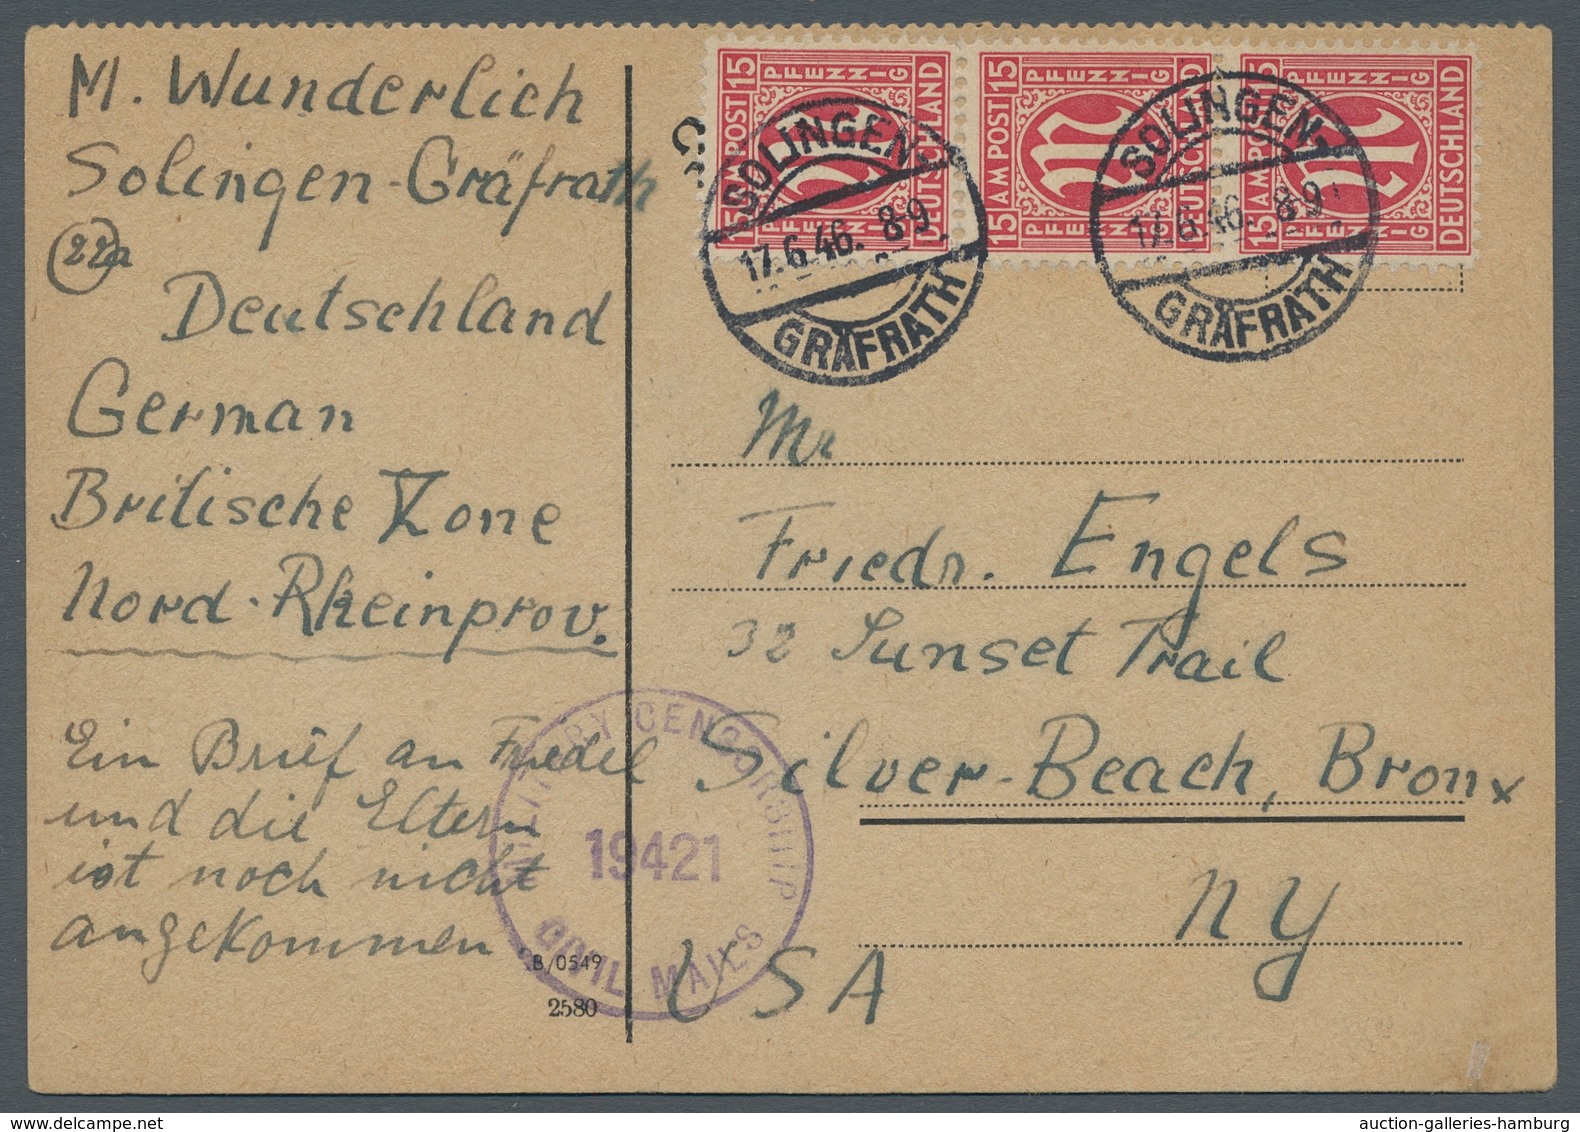 M. Wunderlich
Solingen-Gräfrath
22a
Deutschland
German
Britische Zone
Nord-Rheinprov.
Ein Brief an Friedel
und die Eltern
ist noch nicht
angekommen
B/0549
2580
MILITARY CENSORSHIP
19421
CIVIL MAILS
15 PFENNIG
15 AM POST DEUTSCHLAND
PFENNIG
15 PFENNIG
15 AM POST DEUTSCHLAND
PFENNIG
15 PFENNIG
15 AM POST DEUTSCHLAND
PFENNIG
SOLINGEN
17.6.46. 8-9
GRÄFRATH
SOLINGEN
17.6.46. 8-9
GRÄFRATH
Mr
Friedr. Engels
32 Sunset Trail
Silver-Beach, Bronx
NY
USA
auction-galleries-hamburg